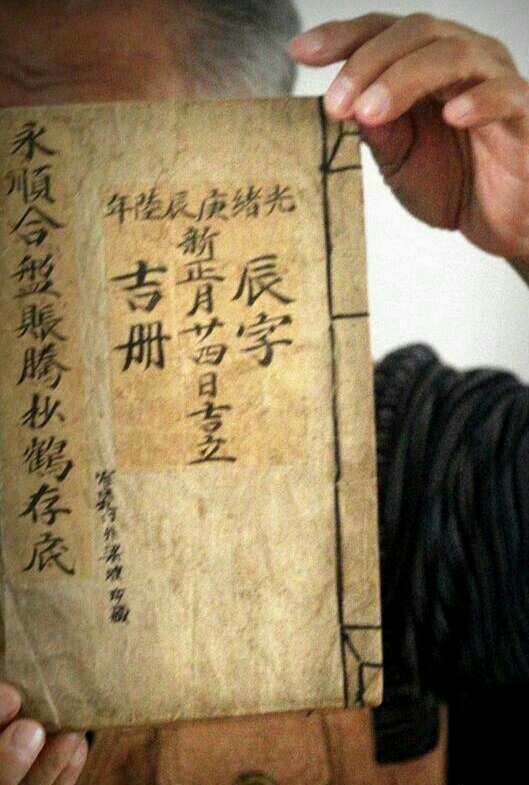 光緒庚辰陸年
辰字
新正月廿四日吉立
吉册
永順合盤賬騰抄鶴存底